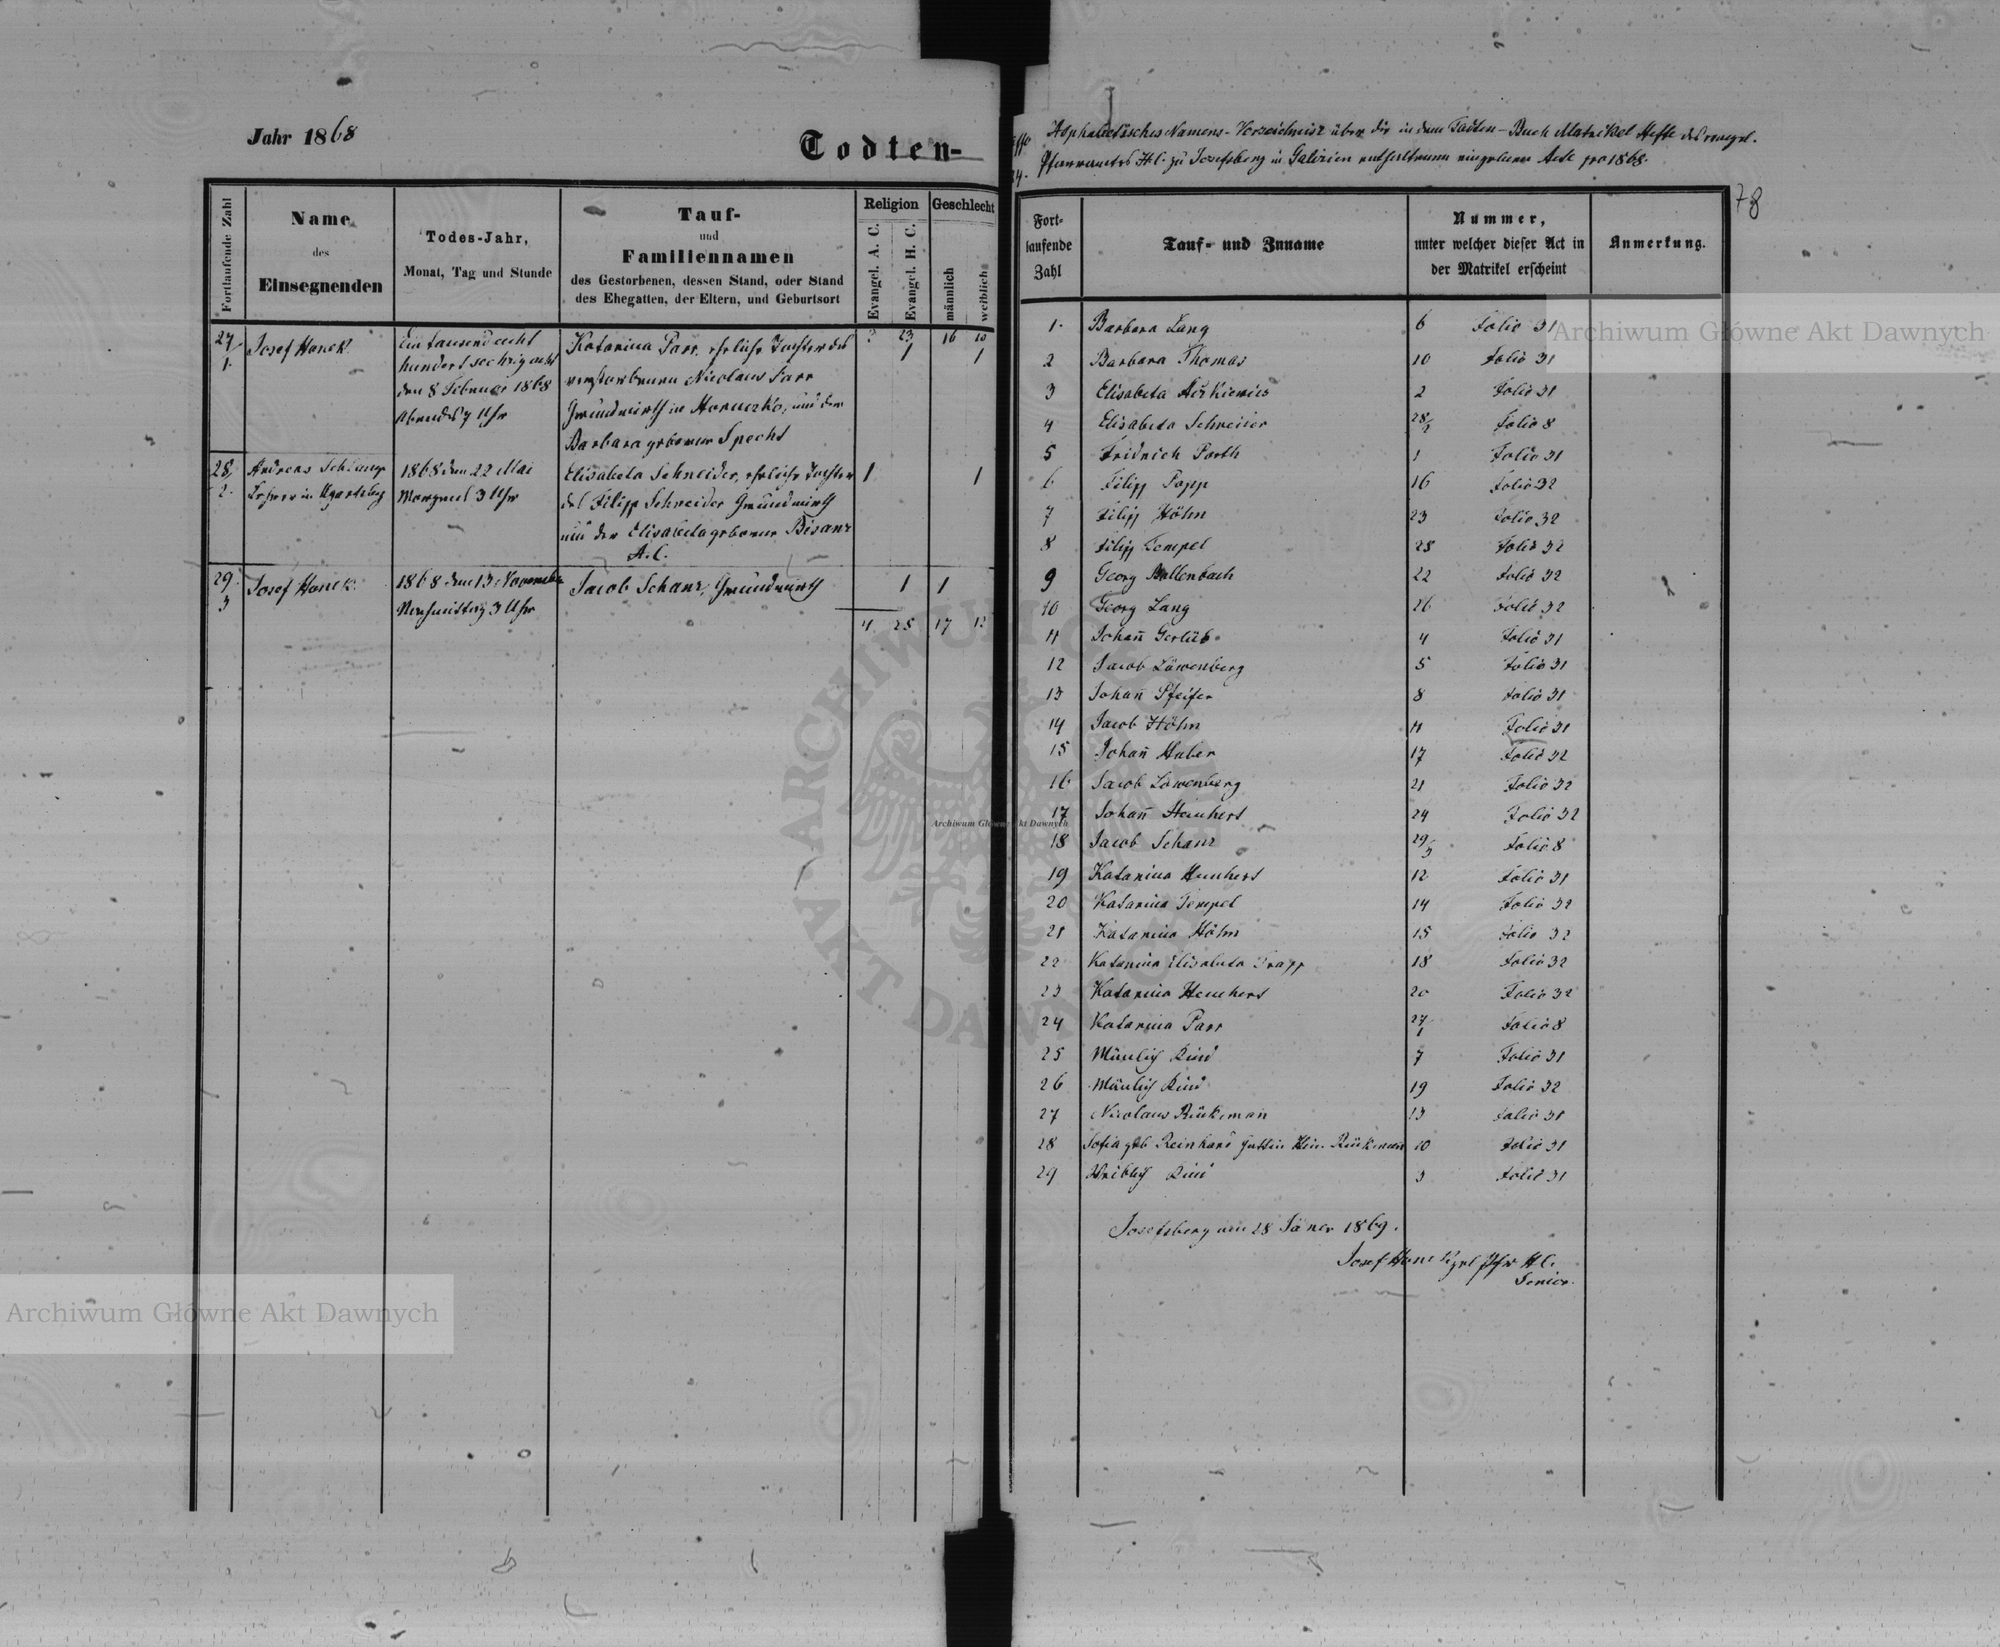 Jahr 1868
Todten-
Fortlaufende Zahl
Name
des
Einsegnenden
Todes-Jahr,
Monat, Tag und Stunde
Tauf-
und
Familiennamen
des Gestorbenen, dessen Stand, oder Stand
des Ehegatten, der Eltern, und Geburtsort
Religion
Evangel. A. C.
Evangel. H. C.
Geschlecht
männlich
weiblich
3 23 16 10
27/1. Josef Hanek
Ein tausend acht
hundert sechzig acht
den 8 Februar 1868
Abends 7 Uhr
Katarina Parr, eheliche Tochter des
verstorbenen Nicolaus Parr
Grundwirth in und der
Barbara geborene Specht
1 1
28/2. Andreas Schlamp
Lehrer in Ugartsberg
1868 den 22 Mai
Morgens 3 Uhr
Elisabeta Schneider, eheliche Tochter
des Filipp Schneider Grundwirth
und der Elisabeta geborene Bisanz
A. C.
1 1
29/3 Josef Hanek
1868 den 13 November
Nachmittag 3 Uhr
Jacob Schanz, Grundwirth
1 1
4 25 17 12
Alphabetisches Namens-Verzeichniss über die in dem Todten-Buch Matrikel Hefte des evangel.
Pfarramtes H. C. zu Josefsberg in Galizien enthaltenen Acte pro 1868.
78
Fort-
laufende
Zahl
Tauf- und Zuname
Nummer,
unter welcher dieser Act in
der Matrikel erscheint
Anmerkung.
1. Barbara Lang 6 Folio 31
2 Barbara Thomas 10 Folio 31
3 Elisabeta 2 Folio 31
4 Elisabeta Schneider 28/2 Folio 8
5 Fridrich Porth 1 Folio 31
6 Filipp Popp 16 Folio 32
7 Filipp Höhn 23 Folio 32
8 Filipp Tempel 25 Folio 32
9 Georg Bollenbach 22 Folio 32
10 Georg Lang 26 Folio 32
11 Johañ 4 Folio 31
12 Jacob Löwenberg 5 Folio 31
13 Johañ Pfeifer 8 Folio 31
14 Jacob Höhn 11 Folio 31
15 Johañ Huber 17 Folio 32
16 Jacob Löwenberg 21 Folio 32
17 Johañ Heuchert 24 Folio 32
18 Jacob Schanz 29/3 Folio 8
19 Katarina Heuchert 12 Folio 31
20 Katarina Tempel 14 Folio 32
21 Katarina Höhn 15 Folio 32
22 Katarina Elisabeta 18 Folio 32
23 Katarina Heuchert 20 Folio 32
24 Katarina Parr 27/1 Folio 8
25 Mänlich Kind 7 Folio 31
26 Mänlich Kind 19 Folio 32
27 Nicolaus Rückeman 13 Folio 31
28 Sofia geb Reinhard Gattin Rückeman 10 Folio 31
29 Weiblich Kind 3 Folio 31
Josefsberg am 28 Jäner 1869.
Josef Hanek Pfr H. C.
Senior.
Archiwum Główne Akt Dawnych
ARCHIWUM GŁÓWNE
AKT DAWNYCH
Archiwum Główne Akt Dawnych
Archiwum Główne Akt Dawnych